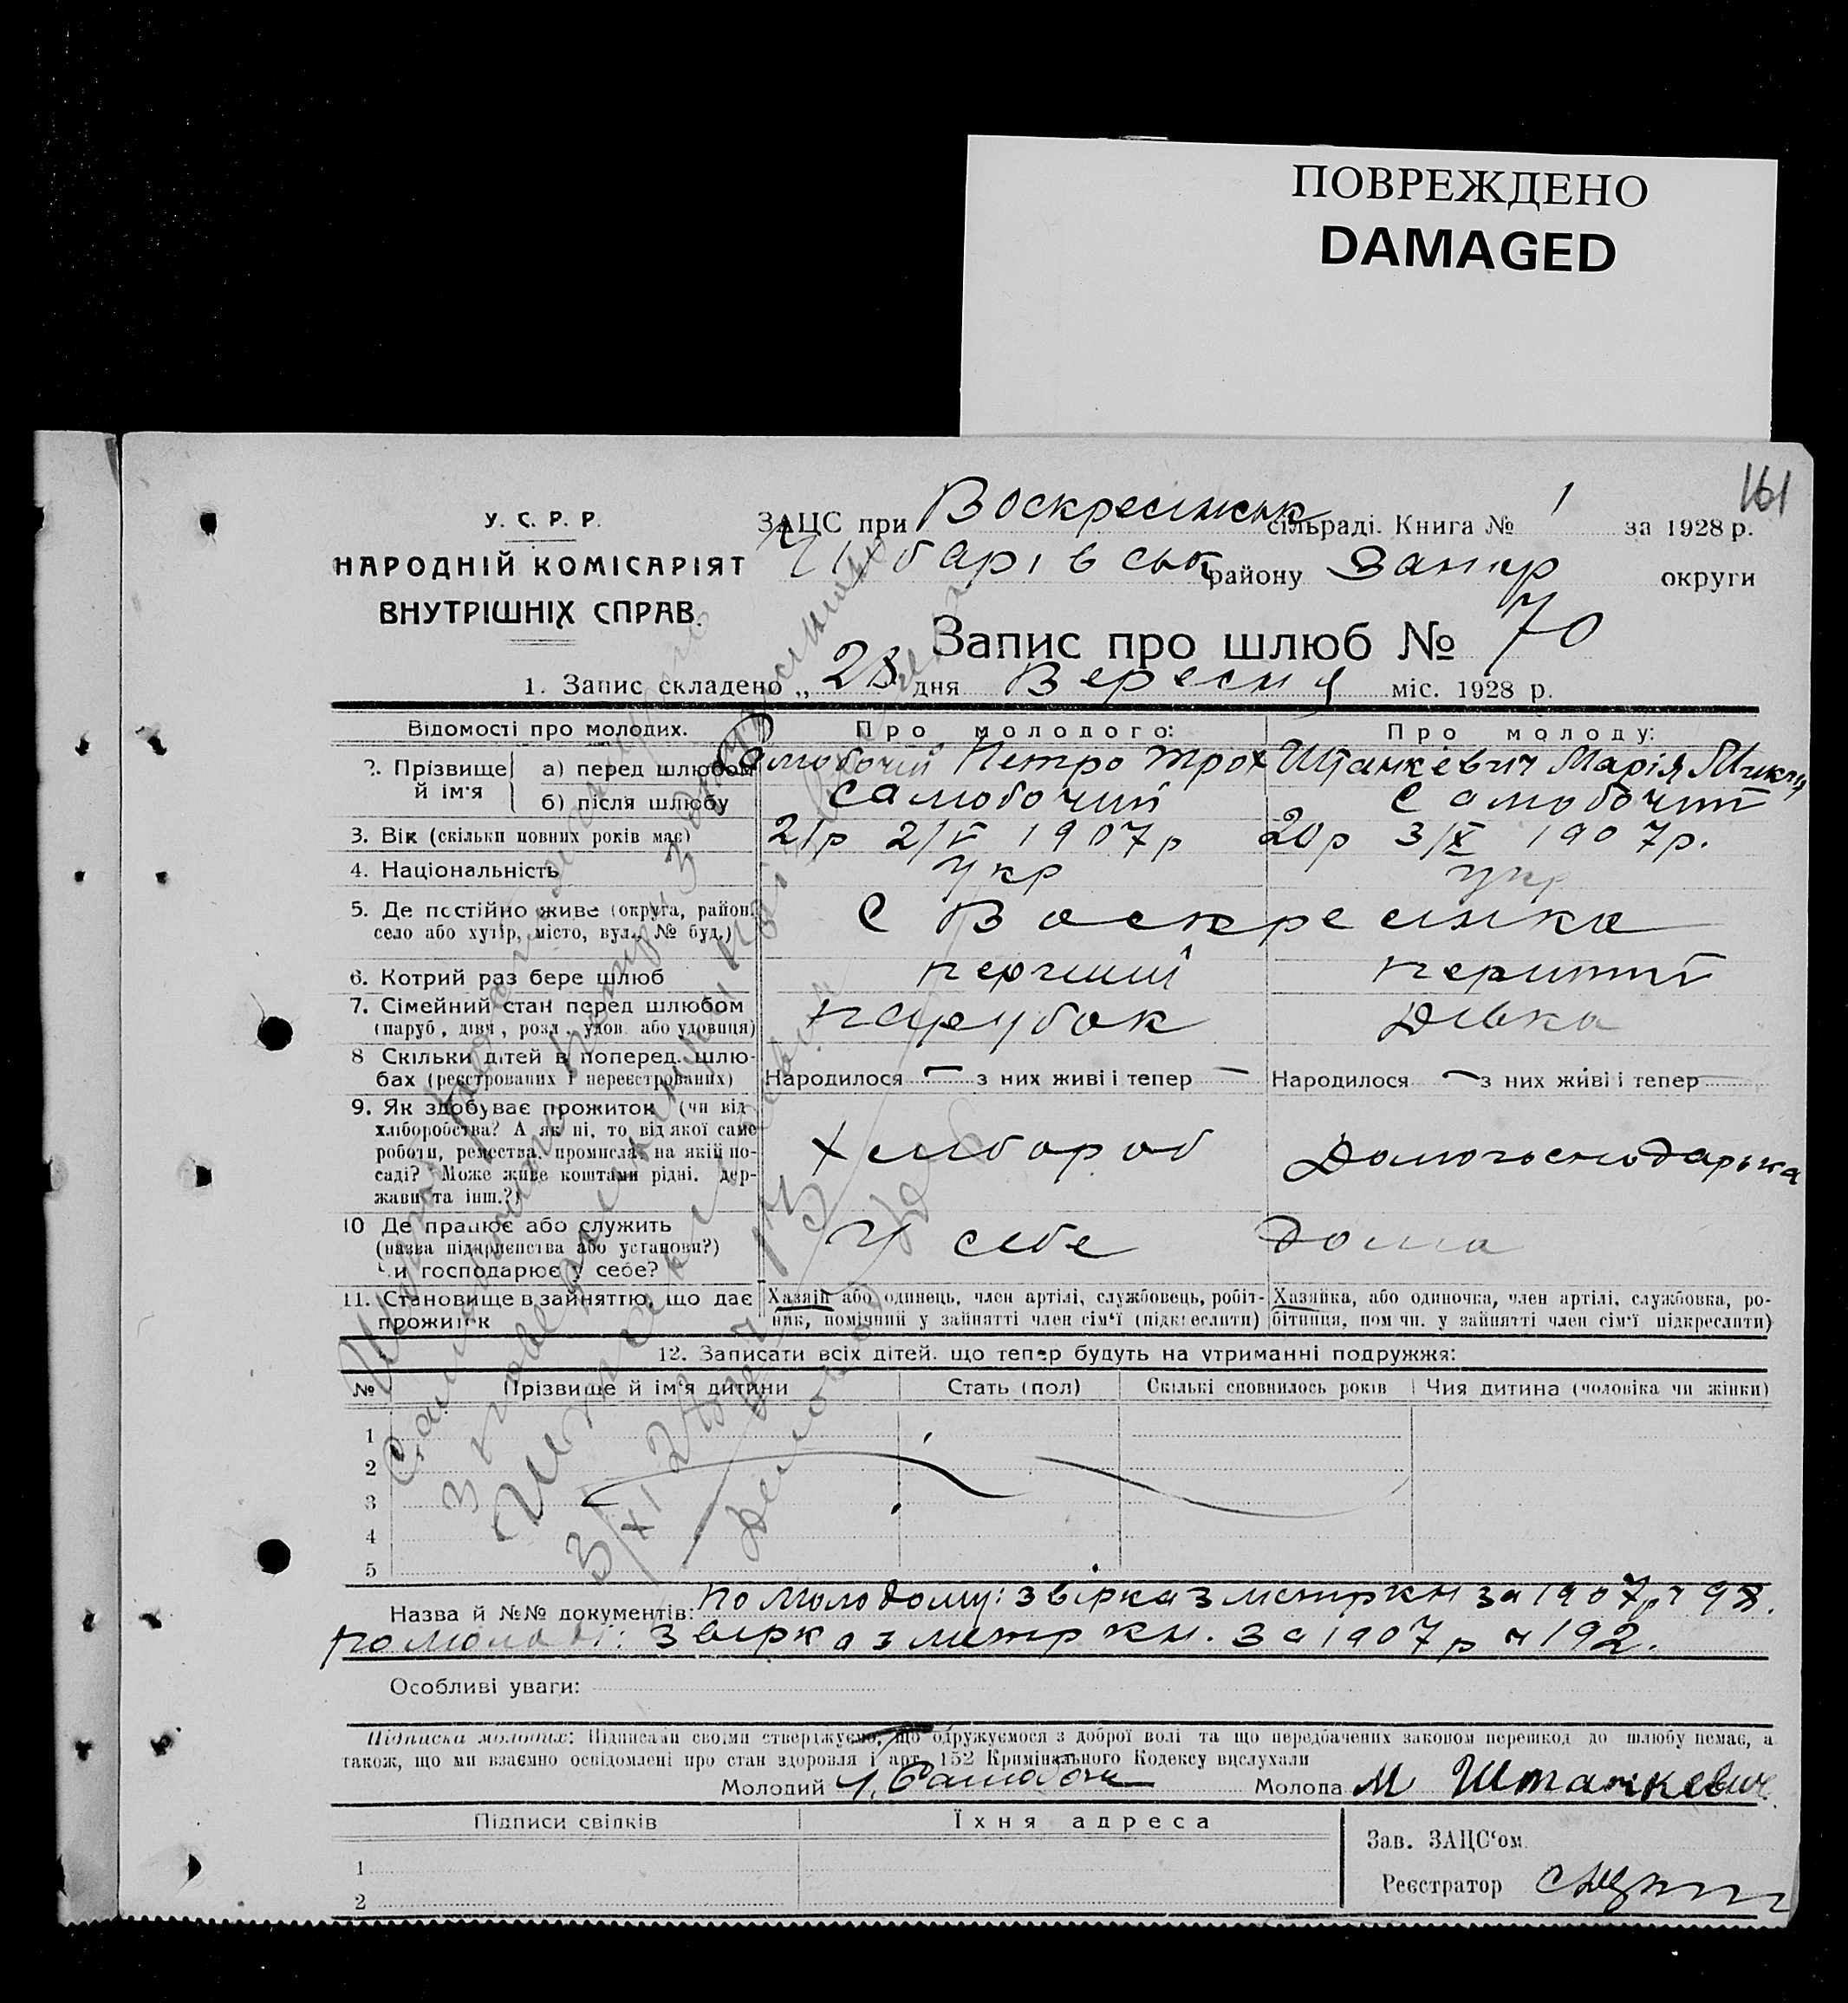 ПОВРЕЖДЕНО
DAMAGED
161
У. С. Р. Р.
НАРОДНІЙ КОМІСАРІЯТ
ВНУТРІШНІХ СПРАВ.
ЗАЦС при Воскресінськ сільраді. Книга № 1 за 1928 р.
району Запор округи
Запис про шлюб № 70
1. Запис складено „ 28 дня Вересня міс. 1928 р.
Відомості про молодих. Про молодого: Про молоду:
2. Прізвище й ім'я а) перед шлюбом Самобочий Петро Трох Штанкевич Марія Микол
б) після шлюбу Самобочий Самобочий
3. Вік (скільки повних років має) 21р 2/V 1907р 20р 3/X 1907р.
4. Національність Укр укр
5. Де постійно живе (округа, район, село або хутір, місто, вул., № буд.) с Воскресінка
6. Котрий раз бере шлюб перший перший
7. Сімейний стан перед шлюбом (паруб., дівч., розл., удов. або удовиця) парубок Дівка
8 Скільки дітей в поперед. шлюбах (реєстрованих і нереєстрованих) Народилося — з них живі і тепер — Народилося — з них живі і тепер
9. Як здобуває прожиток (чи від хліборобства? А як ні, то від якої саме роботи, ремества, промисла, на якій посаді? Може живе коштами рідні, держави та інш.?) Хлібороб Домогосподарька
10 Де працює або служить (назва підприємства або установи?) Чи господарює у себе? У себе дома
11. Становище в зайняттю, що дає прожиток Хазяїн або одинець, член артілі, службовець, робітник, помічний у зайнятті член сім'ї (підкреслити) Хазяйка, або одиночка, член артілі, службовка, робітниця, помічн. у зайнятті член сім'ї підкреслити)
12. Записати всіх дітей, що тепер будуть на утриманні подружжя:
№ Прізвище й ім'я дитини Стать (пол) Скількі сповнилось років Чия дитина (чоловіка чи жінки)
1
2
3
4
5
Назва й №№ документів: по молодому: звірка з метр кн за 1907р ч 98.
по молоді: звірка з метр кн. за 1907р ч 192.
Особливі уваги:
Підписка молодих: Підписами своїми стверджуємо, що одружуємося з доброї волі та що передбачених законом перешкод до шлюбу немає, а
також, що ми взаємно освідомлені про стан здоровля і арт. 152 Кримінального Кодексу вислухали
Молодий Самобоч Молода М Штанкевич
Підписи свідків Їхня адреса
1
2
Зав. ЗАЦС'ом
Реєстратор